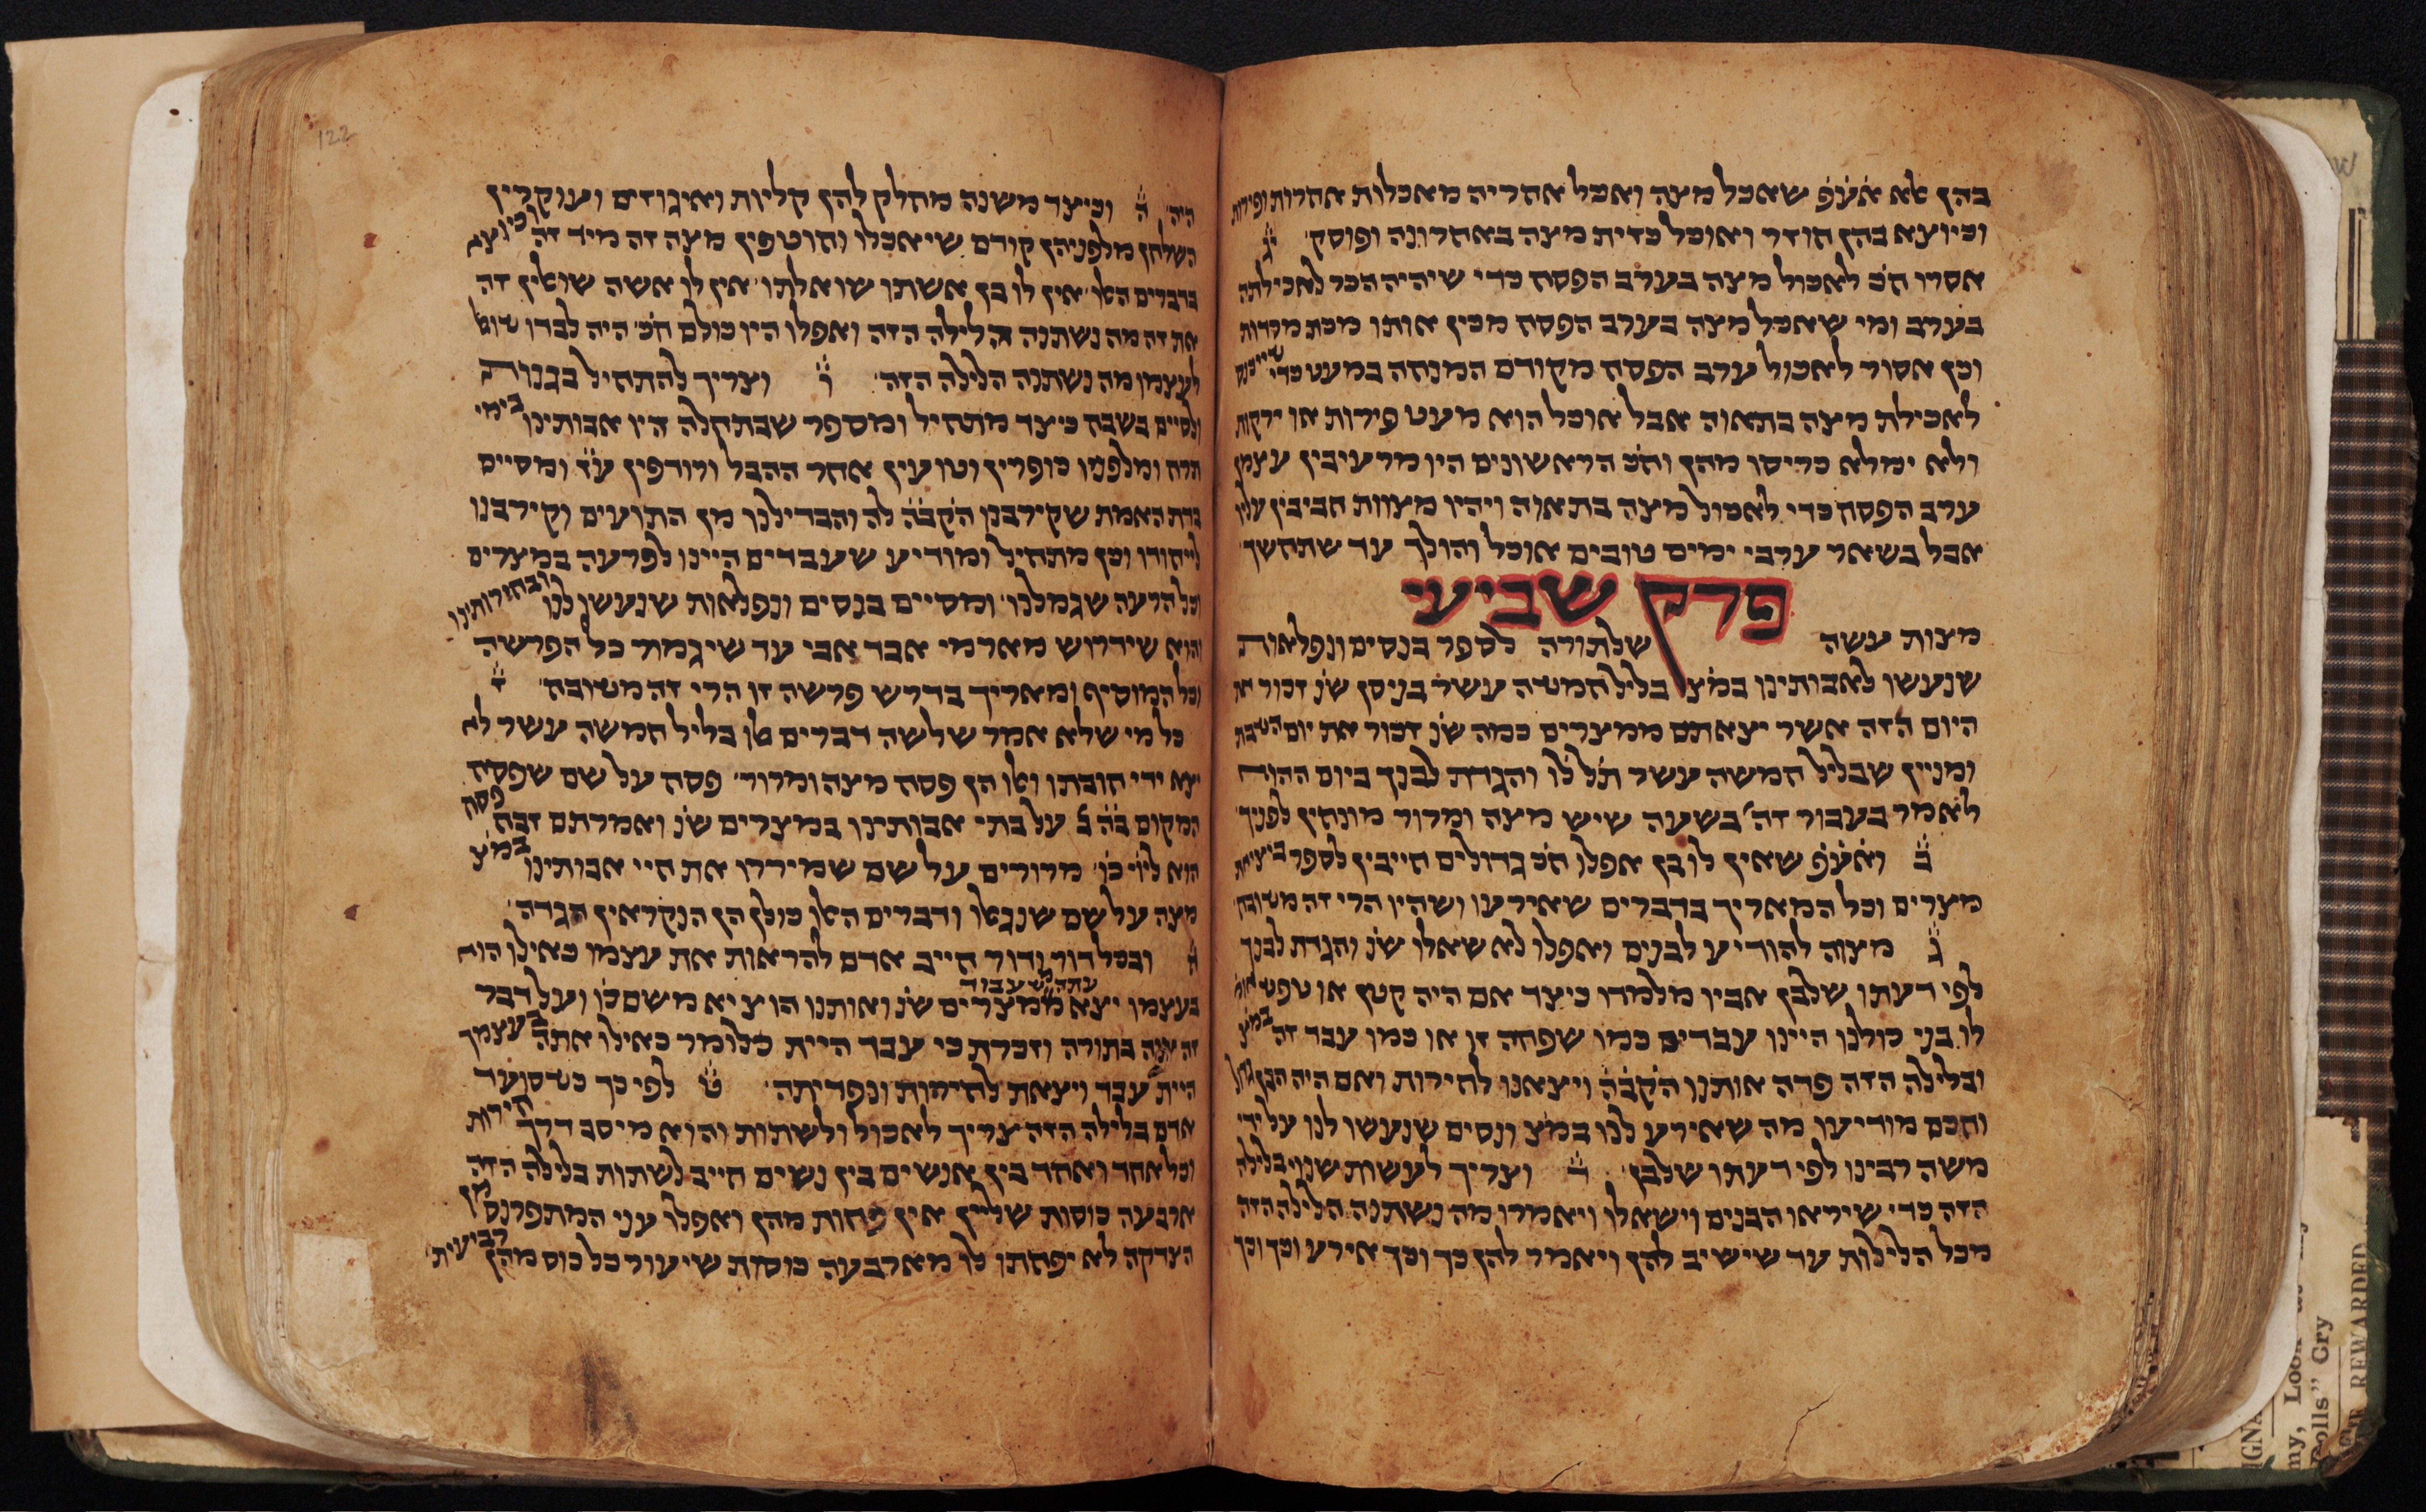 בהן אלא אע̇פ̇ שאכל מצה ואכל אחריה מאכלות אחרות ופירות
וכיוצא בהן חוזר ואוכל כזית מצה באחרונה ופוסק יג
אסרו חכ̇ לאכול מצה בערב הפסח כדי שיהיה הכר לאכילתה
בערב ומי שאכל מצה בערב הפסח מכין אותו מכת מרדות
וכן אסור לאכול ערב הפסח מקודם המנחה במעט כדי שייכנס
לאכילת מצה בתאוה אבל אוכל הוא מעט פירות או ירקות
ולא ימלא כריסו מהן וחכ̇ הראשונים היו מרעיבין עצמן
ערב הפסח כדי לאכול מצה בתאוה ויהיו מצוות חביבין עליו
אבל בשאר ערבי ימים טובים אוכל והולך עד שתחשך
פרק שביעי
מצות עשה שלתורה לספר בנסים ונפלאות
שנעשו לאבותינו במצ̇ בליל חמשה עשר בניסן שנ̇ זכור את
היום הזה אשר יצאתם ממצרים כמה שנ̇ זכור את יום השבת
ומניין שבליל חמשה עשר תל̇ לו̇ והגדת לבנך ביום ההוא
לאמר בעבור זה בשעה שיש מצה ומרור מונחין לפניך
ב ואע̇פ̇ שאין לו בן אפלו חכ̇ גדולים חייבין לספר ביציאת
מצרים וכל המאריך בדברים שאירעו ושהיו הרי זה משובח
ג מצוה להודיע לבנים ואפלו לא שאלו שנ̇ והגדת לבנך
לפי דעתו שלבן אביו מלמדו כיצד אם היה קטן או טפש אומ̇
לו בני כולנו היינו עבדים כמו שפחה זו או כמו עבד זה במצ̇
ובלילה הזה פדה אותנו הקב̇ה̇ ויצאנו לחירות ואם היה הבן גדול
וחכם מודיעו מה שאירע לנו במצ̇ ונסים שנעשו לנו על ידי
משה רבינו לפי דעתו שלבן ד וצריך לעשות שנוי בלילה
הזה כדי שיראו הבנים וישאלו ויאמרו מה נשתנה הלילה הזה
מכל הלילות עד שישיב להן ויאמר להן כך וכך אירע וכך וכך
122
היה ה וכיצד משנה מחלק להן קליות ואיגוזים ועוקרין
השלחן מלפניהן קודם שיאכלו וחוטפין מצה זה מיד זה וכיוצא
בדברים האלו אין לו בן אשתו שואלתו אין לו אשה שואלין זה
את זה מה נשתנה הלילה הזה ואפלו היו כולם חכ̇ היה לבדו שואל
לעצמו מה נשתנה הלילה הזה ו וצריך להתחיל בגנות
ולסיים בשבח כיצד מתחיל ומספר שבתחלה היו אבותינו בימי
תרח ומלפניו כופרין וטועין אחר ההבל ורודפין ע̇ז̇ ומסיים
בדת האמת שקירבנו הקב̇ה̇ לה והבדילנו מן התועים וקירבנו
לייחודו וכן מתחיל ומודיע שעבדים היינו לפרעה במצרים
וכל הרעה שגמלנו ומסיים בנסים ונפלאות שנעשו לנו ובחירותינו
והוא שידרוש מארמי אבד אבי עד שיגמור כל הפרשה
וכל המוסיף ומאריך בדרש פרשה זו הרי זה משובח ז
כל מי שלא אמר שלשה דברים אלו בליל חמשה עשר לא
יצא ידי חובתו ואלו הן פסח מצה ומרור פסח על שם שפסח
המקום ב̇ה̇ על בתי אבותינו במצרים שנ̇ ואמרתם זבח פסח
הוא ליי̇ כו̇ מרורים על שם שמיררו את חיי אבותינו במצ̇
מצה על שם שנגאלו ודברים האלו כולן הן הנקראין הגדה
ח ובכל דור ודור חייב אדם להראות את עצמו כאילו הוא
עתה משעבוד
בעצמו יצא ממצרים שנ̇ ואותנו הוציא משם כו̇ ועל דבר
זה צוה בתורה וזכרת כי עבד היית כלומר כאילו אתה בעצמך
היית עבד ויצאת לחירות ונפדיתה ט לפי כך כשסועד
אדם בלילה הזה צריך לאכול ולשתות והוא מיסב דרך חירות
וכל אחד ואחד בין אנשים בין נשים חייב לשתות בלילה הזה
ארבעה כוסות שליין אין פחות מהן ואפלו עני המתפרנס מן
הצדקה לא יפחתו לו מארבעה כוסות שיעור כל כוס מהן רביעית
my, Look
Polls" Cry
REWARDED